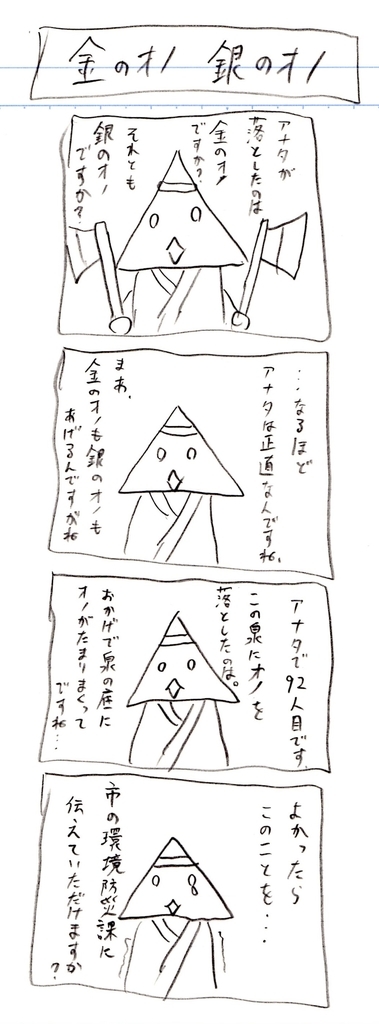 金のオノ 銀のオノ
アナタが
落としたのは
金のオノ
ですか?
それとも
銀のオノ
ですか?
…なるほど
アナタは正直なんですね。
まあ、
金のオノも銀のオノも
あげるんですがね
アナタで92人目です
この泉にオノを
落としたのは。
おかげで泉の底に
オノがたまりまくって
ですね…
よかったら
このことを…
市の環境防災課に
伝えていただけますか?